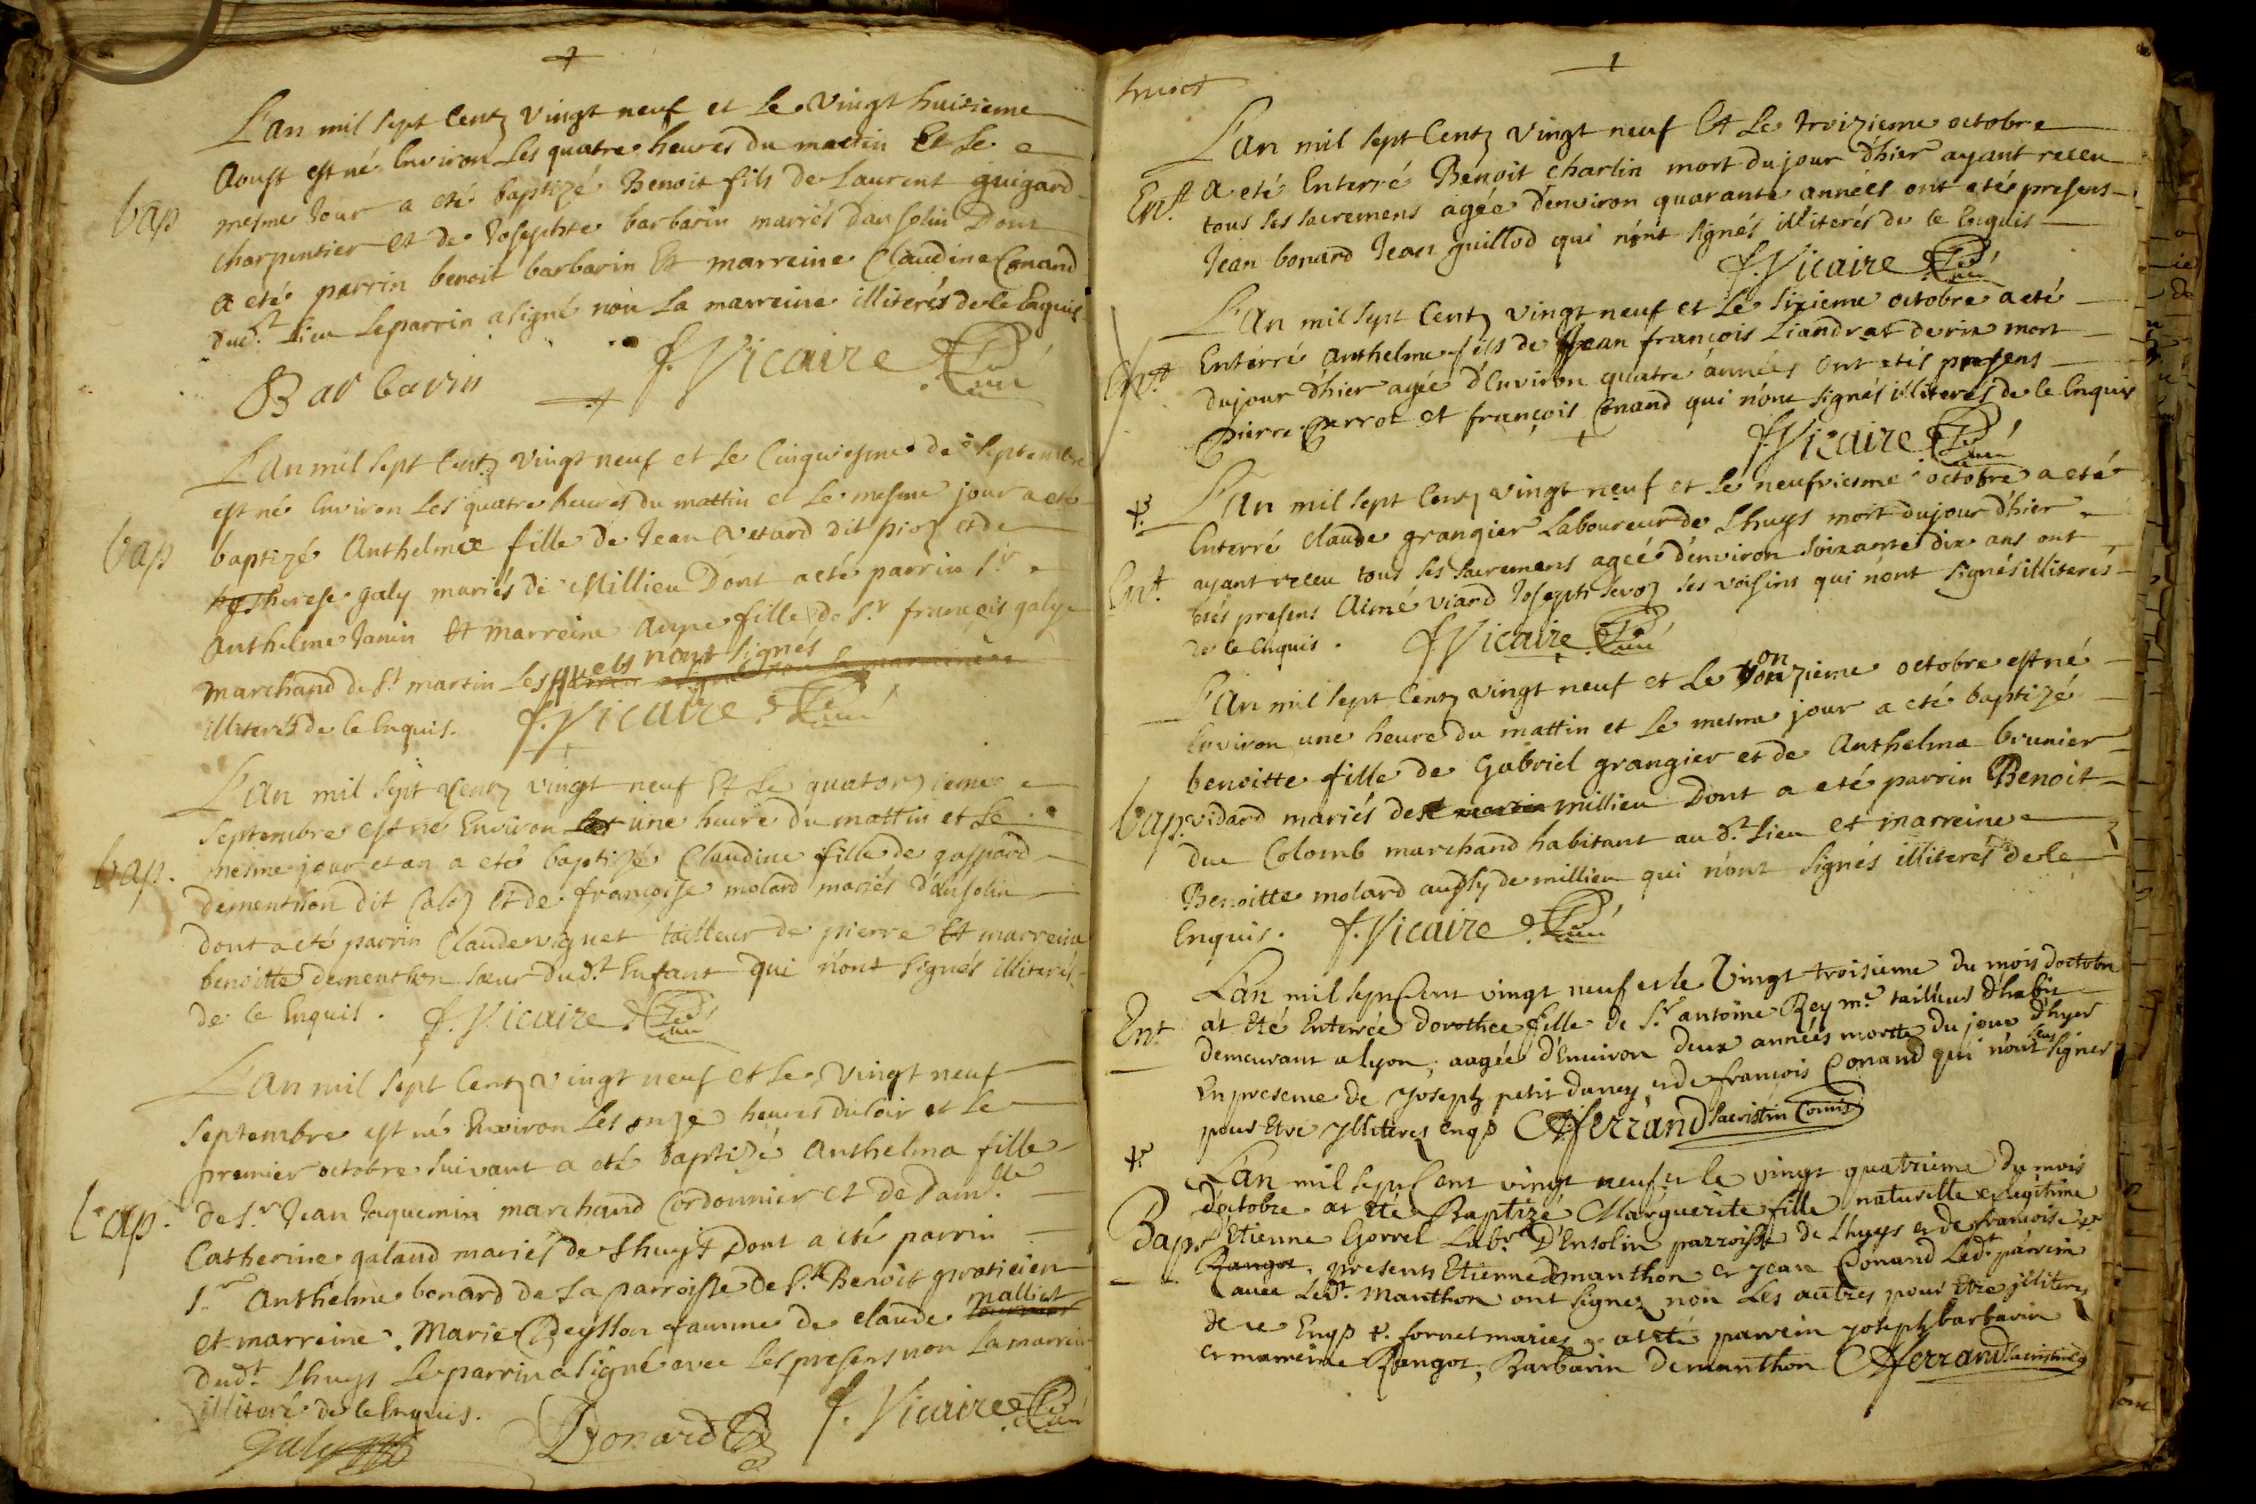 L'an mil sept Centz vingt neuf et le vingt huitieme
Aoust est né Environ Les quatre heures du mattin Et le
bap mesme Jour a eté baptizé Benoit fils de Laurent guigard
charpentier et de Josephte barbarin mariés d'ansolin Dont
a eté parrin benoit barbarin Et marreine Claudine Conand
dud.t Lieu Le parrin a signé non La marreine illiterés de ce Enquis
Barbarin f. Vicaire Curé
L'an mil sept Centz vingt neuf et le Cinquiesme de Septembre
est né Environ Les quatre heures du mattin et le mesme jour a eté
bap baptizé Anthelme fille de Jean Vetard dit pioz et de
Therese galy mariés de Millieu Dont a eté parrin s.r
Anthelme Janin Et marreine Anne fille de S.r françois galy
marchand de St martin Lesquels n'ont signés
illiterés de ce Enquis. f. Vicaire Curé
L'an mil sept Centz vingt neuf Et le quatorzieme
Septembre est né Environ une heure du mattin et le
bap. mesme jour et an a eté baptizé Claudine fille de gaspard
dementhon dit Caloz Et de françoise molard mariés d'ansolin
dont a eté parrin Claude viguet tailleur de pierre Et marreine
benoitte dementhon sœur dud.t Enfant qui n'ont signés illiterés
de ce Enquis. f. Vicaire Curé
L'an mil sept Centz vingt neuf et le vingt neuf
Septembre est né Environ Les onze heures du soir et le
premier octobre suivant a eté baptizé Anthelma fille
bap. de S.r Jean Jaquemin marchand Cordonnier et de dam.lle
Catherine galand mariés de Lhuys Dont a eté parrin
s.r Anthelme bonard de La parroisse de S.t Benoit praticien
et marreine. Marie Peysson famme de claude malliet
dud.t Lhuys Le parrin a signé avec Les presens non La marreine
illiteré de ce Enquis.
Galy Bonard f. Vicaire Curé
L'an mil sept Centz vingt neuf Et Le troizieme octobre
Ent. a eté Enterré Benoit charlin mort du jour d'hier ayant receu
tous ses sacremens agée d'environ quarante années ont eté presens
Jean bonard Jean guillod qui n'ont signés illiterés de ce Enquis
f. Vicaire Curé
L'an mil sept Centz vingt neuf et Le sixieme octobre a eté
Ent. Enterré Anthelme fils de Jean françois Liandrat de rix mort
du jour d'hier agée d'Environ quatre années ont etés presens
Pierre Perrot et françois Conand qui n'ont signés illiterés de ce Enquis
f. Vicaire Curé
L'an mil sept Centz vingt neuf et le neufviesme octobre a eté
Enterré claude grangier Laboureur de Lhuys mort du jour d'hier
Ent. ayant receu tous ses sacremens ageé d'environ soixante dix ans ont
etés presens Aimé viard Joseph sevoz ses voisins qui n'ont signés illiterés
de ce Enquis. f. Vicaire Curé
L'an mil sept Centz vingt neuf et Le onzieme octobre est né
Environ une heure du mattin et le mesme jour a eté baptizé
benoitte fille de Gabriel grangier et de Anthelma brunier
bap. vidard mariés de millieu Dont a eté parrin Benoit
duc Colomb marchand habitant au d.t Lieu et marreine
Benoitte molard aussy de millieu qui n'ont signés illiterés de ce
Enquis. f. Vicaire Curé
L'an mil sept Cent vingt neuf et le Vingt troisieme du mois d'octobre
Ent at Eté Enterrée dorothee fille de S.r antoine Rey m.e tailleur d'habit
demeurant a lyon, aagée d'Environ deux années morte du jour d'hyer
En presence de Joseph petit et de françois Conand qui n'ont sceu signer
pour Etre Jlliteres enqs CFerrand sacristin Commis
L'an mil sept Cent vingt neuf et le vingt quatrieme du mois
d'octobre at Eté Baptizé Marguerite fille naturelle et legitime
Bap. d'Etienne Gorrel Lab.r d'Ensolin parroisse de Lhuys et de francoise
presents Etienne demanthon et Jean Conand Led.t parrein
avec Led.t Manthon ont signez non Les autres pour Etre jlliteres
de ce Enqs fornet mariez at eté parrein joseph barbarin
et marreine Rangot, Barbarin Demanthon CFerrand sacristin